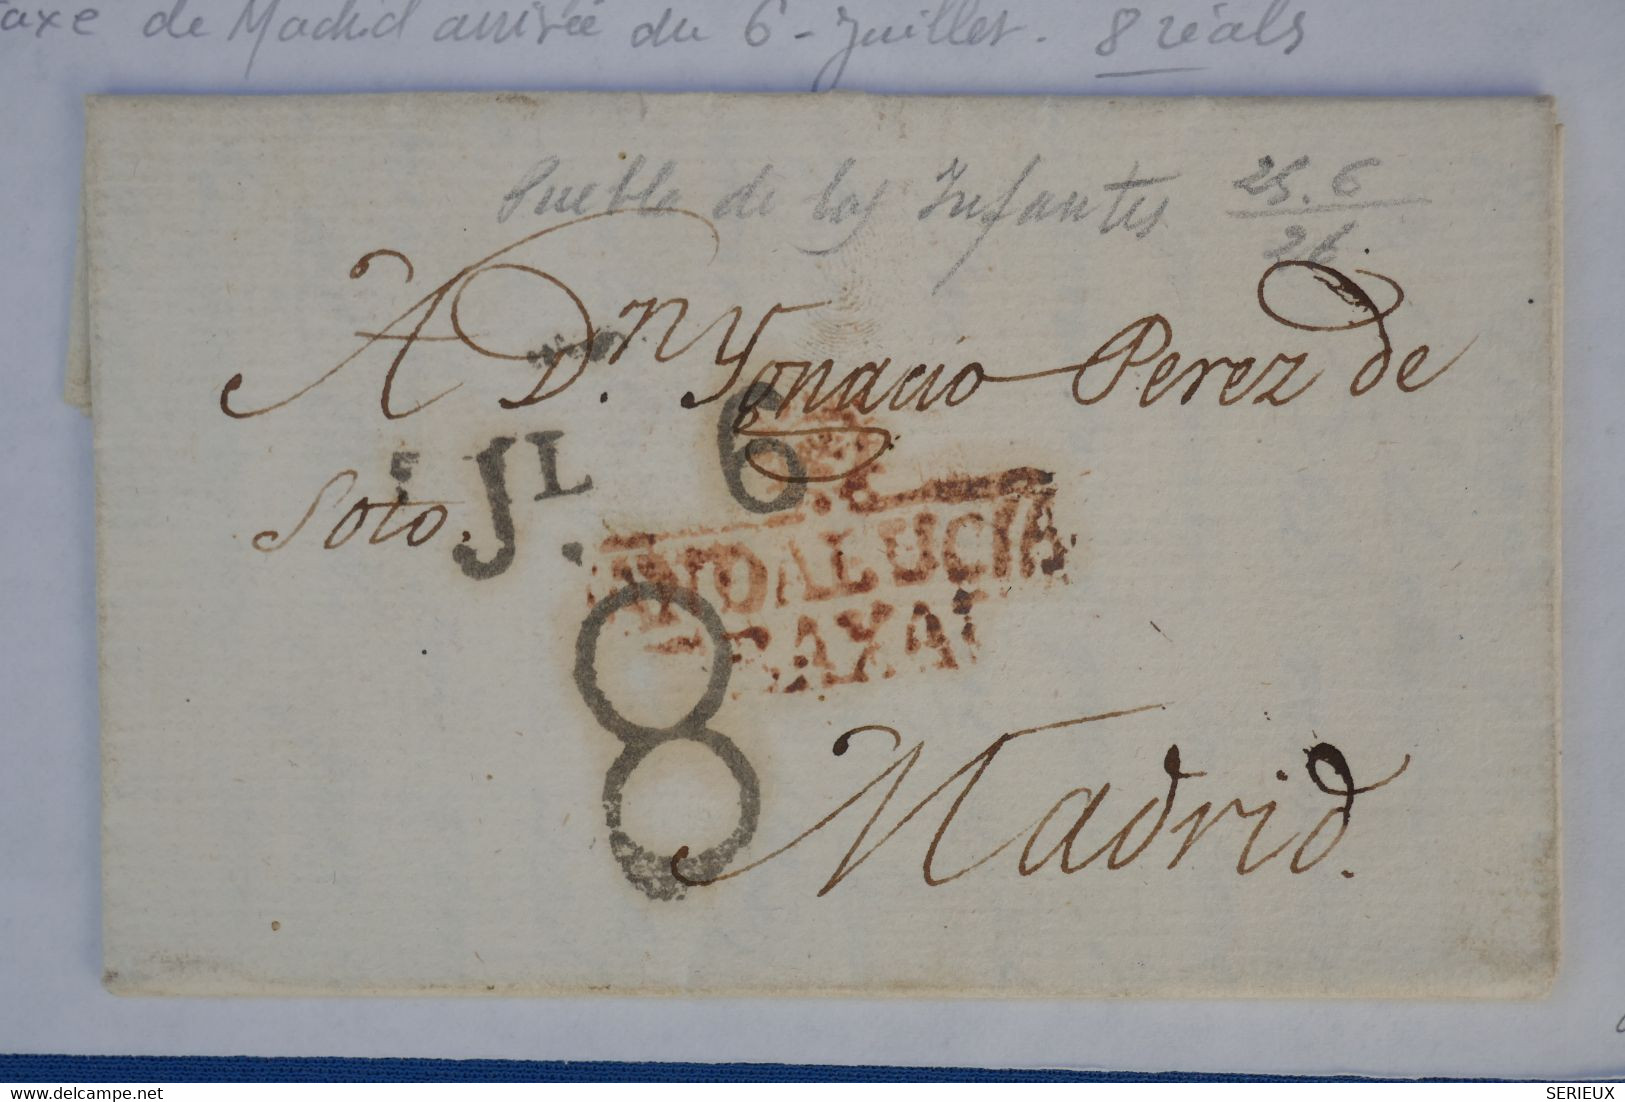 taxe de Madrid arrivée du 6 - Juillet. 8 réals
Puebla de los Infantes 25.6
26
A Dn. Ygnacio Perez de
Soto.
JL. 6
ANDALUCIA
BAXA
8
Madrid.
SERIEUX
delcampe.net